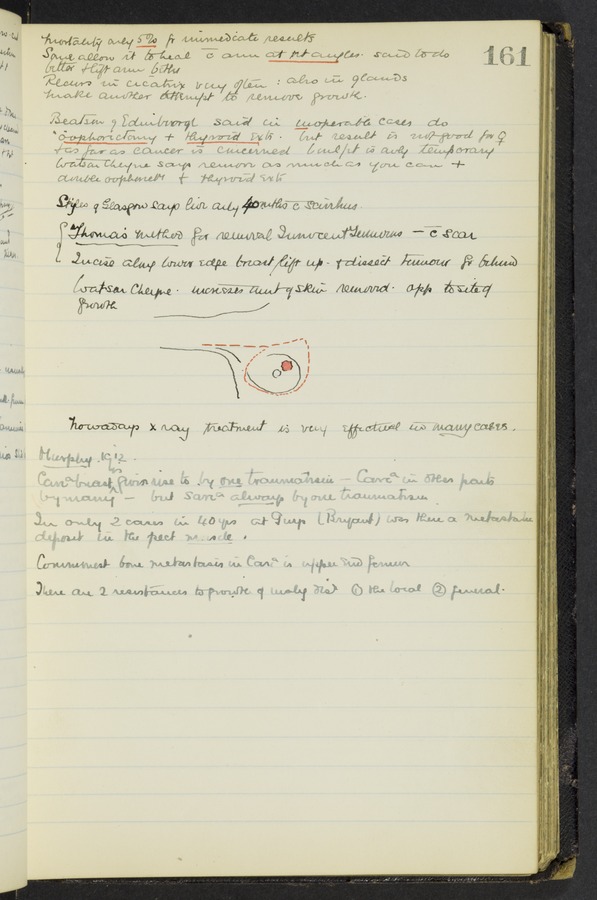 161
Mortality only 5% fr immediate results
Some allow it to heal c̄ arm at rt angles. said to do
better & lift arm better
Recurs in cicatrix very often : also in glands
make another attempt to remove growth.
Beatson of Edinburgh said in inoperable cases do
"oophorectomy + thyroid Exts. but result is not good for ♀
& as far as cancer is concerned benefit is only temporary
Watson Cheyne says remove as much as you can +
double oophorect & thyroid Exts
Stiles of Glasgow says live only 40 mths c̄ scirrhus
Thomas method for removal Innocent Tumours — c̄ scar
Incise along lower edge breast, lift up. & dissect tumour fr behind
Watson Cheyne. increases amt of skin removed. opp to site of
growth
Nowadays x ray treatment is very effectual in many cases.
Murphy. 1912.
Carca breast gives rise to by one traumatism — Carca in other parts
by many — but Sarca always by one traumatism
In only 2 cases in 40 yrs at Guys (Bryant) was there a metastatic
deposit in the pect muscle.
Commonest bone metastasis in Carca is upper end femur
There are 2 resistances to growth of malig dist ① the local ② general.